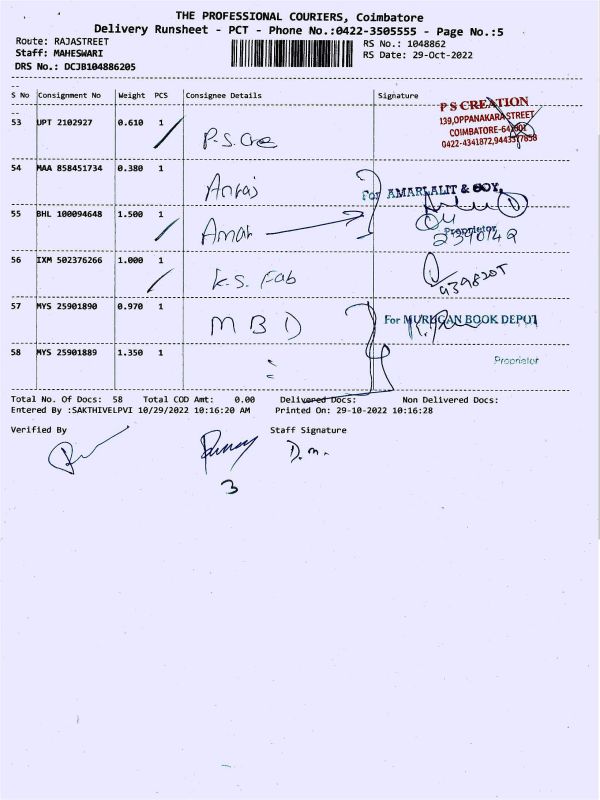 THE PROFESSIONAL COURIERS, Coimbatore
Delivery Runsheet - PCT - Phone No.:0422-3505555 - Page No.:5
Route: RAJASTREET
Staff: MAHESWARI
DRS No.: DCJB104886205
RS No.: 1048862
RS Date: 29-Oct-2022
S No Consignment No Weight PCS Consignee Details Signature
53 UPT 2102927 0.610 1 P.S. Cre
P S CREATION
139,OPPANAKARA STREET
COIMBATORE-641001
0422-4341872,
54 MAA 858451734 0.380 1
For AMARLALIT & COY,
55 BHL 100094648 1.500 1 Amar
Proprietor
56 IXM 502376266 1.000 1 K.S. Fab
57 MYS 25901890 0.970 1 M B D
For MURUGAN BOOK DEPOT
58 MYS 25901889 1.350 1
Proprietor
Total No. Of Docs: 58 Total COD Amt: 0.00 Delivered Docs: Non Delivered Docs:
Entered By :SAKTHIVELPVI 10/29/2022 10:16:20 AM Printed On: 29-10-2022 10:16:28
Verified By Staff Signature
D.m.
3